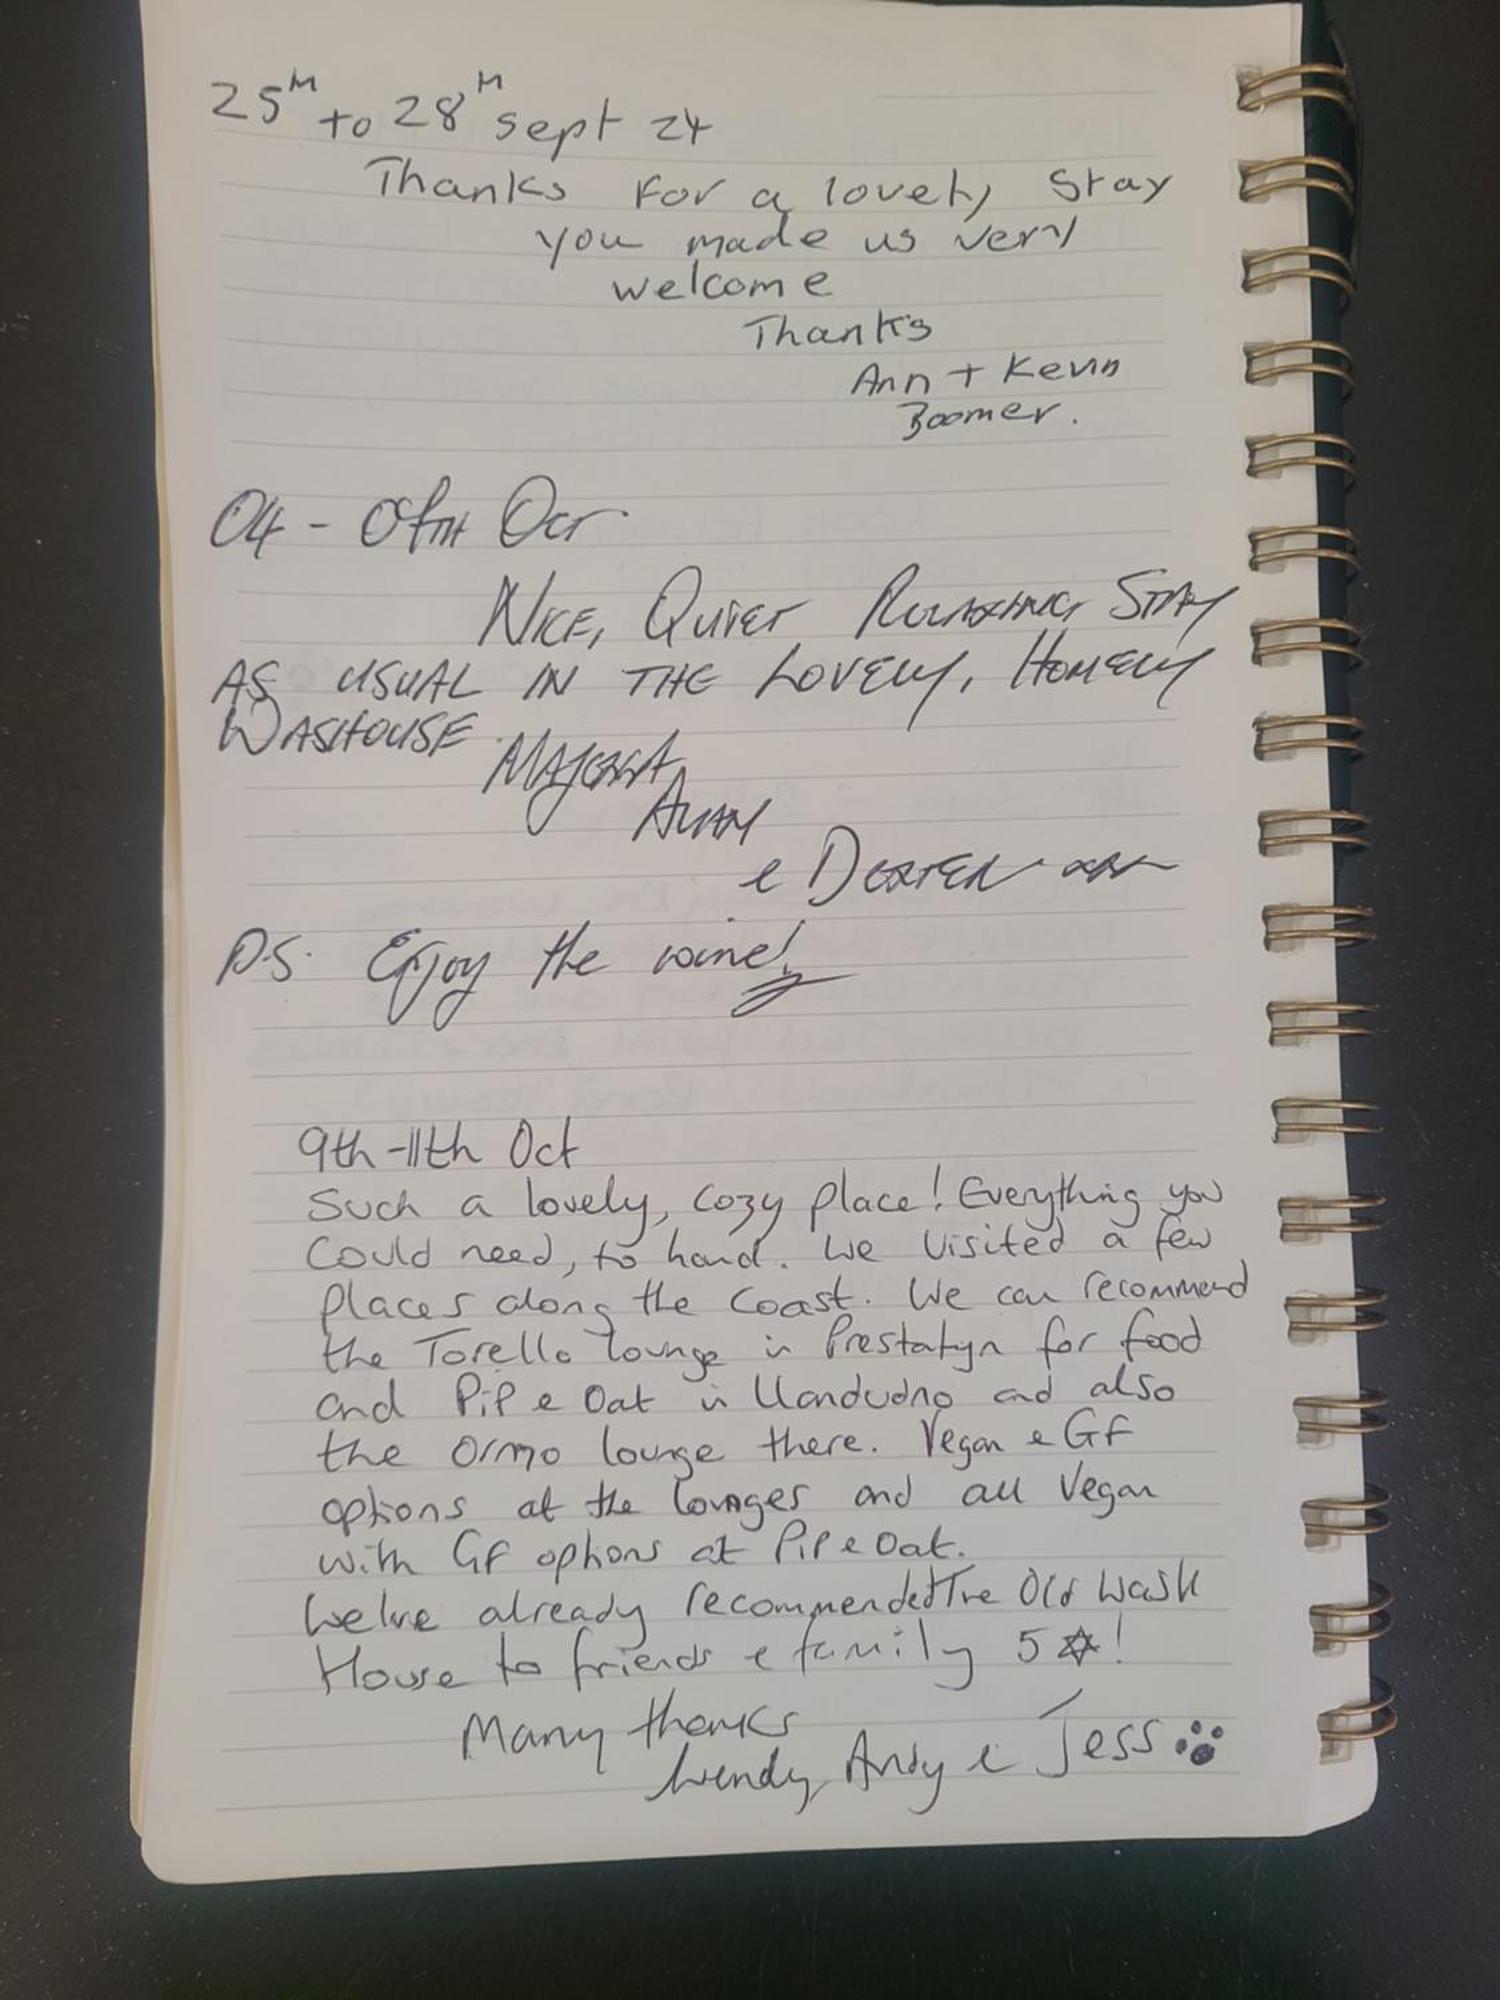 25th to 28th sept 24
Thanks for a lovely stay
you made us very
welcome
Thanks
Ann + Kevin
Boomer.
04 - 08TH OCT
NICE, QUIET RELAXING STAY
AS USUAL IN THE LOVELY, HOMELY
WASHOUSE.
ALAN
& DEXTER
P.S. Enjoy the wine!
9th-11th Oct
Such a lovely, cozy place! Everything you
could need, to hand. We visited a few
places along the coast. We can recommend
the Torello lounge in Prestatyn for food
and Pip & Oat in Llandudno and also
the Ormo lounge there. Vegan & GF
options at the lounges and all Vegan
with GF options at Pip & Oat.
We've already recommended The Old Wash
House to friends & family 5☆!
Many thanks
Wendy, Andy & Jess